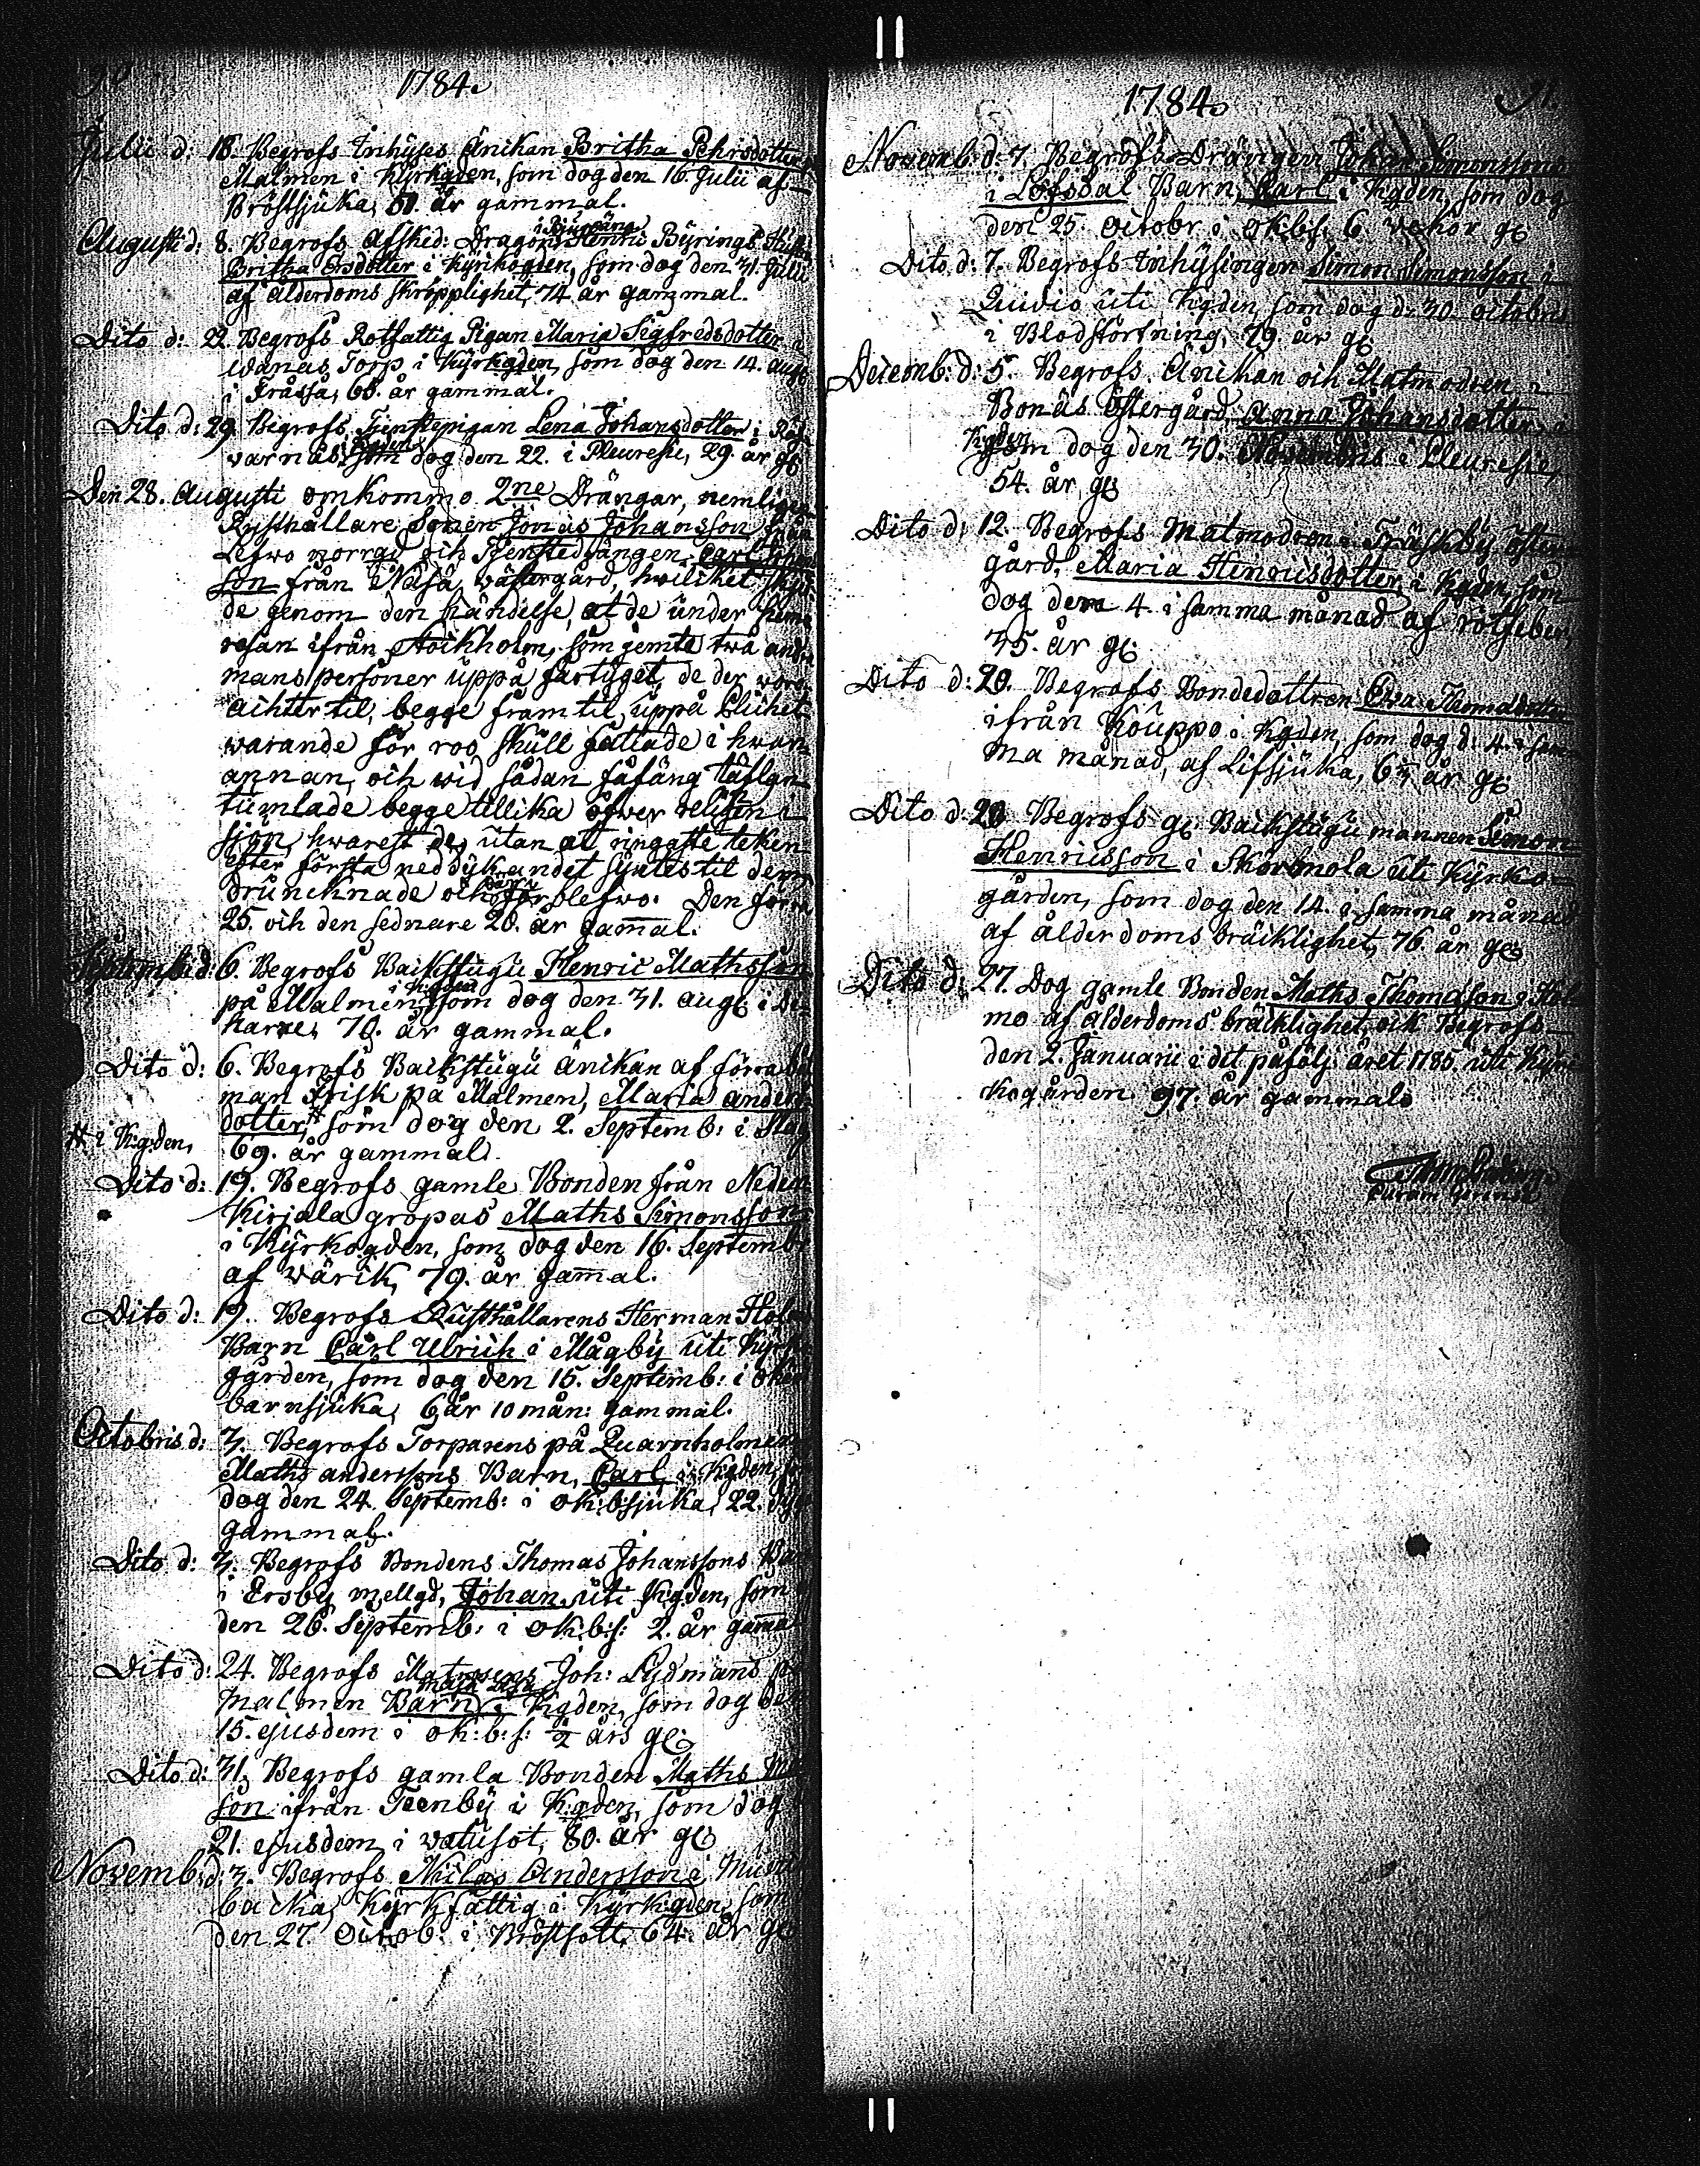 1784.
Julii d: 18. Begrofs Inhyses Änckan Britha Pehrsdotter
Malmen i Kyrkgden, som dog den 16. Julii af
Bröstsjuka, 50. år gammal.
Augusti d: 8. Begrofs Afsked: Dragon Henric Byrings
Britha Ersdotter i Kyrkogden, som dog den 31. Julii
af ålderdoms skröpplighet, 74 år gammal.
Dito d: 22. Begrofs Rotfattig Pigan Maria Sigfredsdotter
Torp i Kyrkgden, som dog den 14. Aug:
i Fråssa, 68. år gammal.
Dito d: 29. Begrofs Tjenstepigan Lena Johansdotter i
varnäs i Kgden som dog den 22. i Pleuresie, 29. år gl:
Den 28. Augusti omkommo 2ne Drängar, nemligen
Rusthållare Sonen Jonas Johansson från
Lefwo norrgd och Tjenstedrängen Carl
son från Näså wästergård, hwilcket skjed-
de genom den händelse, at de under hem-
resan ifrån Stockholm, som jemte twå andra
mans personer uppå fartyget, de der woro
achter til, begge fram til, uppå Plichtet
warande för roo skull fattade i hwar-
annan, och wid sådan fåfäng täflan
tumlade begge tillika öfwer religen i
sjön, hwarest de, utan at ringaste teken
efter första neddykandet syntes til dem,
druncknade och blefwo. Den förra
25. och den sednare 20. år gam̅al.
Septemb: d: 6. Begrofs Backstugu Henric Mathsson
på Malmen i Kgden som dog den 31. Aug: i
70. år gammal.
Dito d: 6. Begrofs Backstugu Änckan af förra
man Frisk på Malmen, Maria Anders-
dotter,# som dog den 2. Septemb: i
# i K:gden,
69. år gammal.
Dito d: 19. Begrofs gamle Bonden från Neder
Kirjala gropas Maths Simonsson
i Kyrkogden, som dog den 16. Septemb:
af wärk, 79. år gam̅al.
Dito d: 19. Begrofs Rusthållarens Herman
Barn Carl Ulrich i Mågby uti Kyrko
gården, som dog den 15. Septemb: i oken
barnsjuka, 6 år 10 mån: gammal.
Octobris d: 3. Begrofs Torparens på Quarnholmen
Maths Anderssons Barn, Carl, i Kgden,
dog den 24. Septemb: i ok:b:sjuka, 22.
gammal.
Dito d: 3. Begrofs Bondens Thomas Johanssons
i Ersby mellgd, Johan uti Kgden, som
den 26. Septemb: i ok:b:s: 2. år gam̅al
Dito d: 24. Begrofs Matrosens Joh: Lydmans på
Malmen Barn i Kgden, som dog den
15. ejusdem i ok:b:s: ½ års gl:
Dito d: 31. Begrofs gamla Bonden Maths
son ifrån Teenby i K:gden, som dog
21. ejusdem, i watusot, 80. år gl:
Novemb: d: 3. Begrofs Niclas Andersson i
backa, Kyrkfattig i Kyrkgden, som
den 27. Octob: i Bröstsott, 64. år gl:
1784.
Novemb: d: 7. Begrofs Drängen Johan Simonssons
i Lofsdal Barn, Carl i Kgden, som dog
den 25. Octobr: i ok:b:s: 6. weckor gl:
Dito d: 7. Begrofs Inhysingen Simon Simonsson i
Quidio uti Kgden, som dog d: 30. octobris
i Blodstörtning, 79. år gl:
Decemb: d: 5. Begrofs Änckan och Matmodren i
Bonäs Östergård, Anna Johansdotter, i
Kgden
som dog den 30. Novembris i Pleuresie,
54. år gl:
Dito d: 12. Begrofs Matmodren i Träskby Öster
gård, Maria Henricsdotter i Kgden, som
dog den 4. i samma månad af rötfeber,
35. år gl:
Dito d: 20. Begrofs Bondedottren Ewa Thomasdotter
ifrån Kouppo i Kgden, som dog d: 4. i sam
ma månad, af Lifsjuka, 6 år gl:
Dito d: 20. Begrofs gl: Backstugu mannen Simon
Henricsson i Skärmola uti Kyrko-
gården, som dog den 14. i samma månad
af ålderdoms bräcklighet, 76. år gl:
Dito d: 27. Dog gamle Bonden Maths Thomasson i
mo af ålderdoms bräcklighet, och Begrofs
den 2. Januarii i det påfölj: året 1785. uti Kyr-
kogården, 97. år gammal.